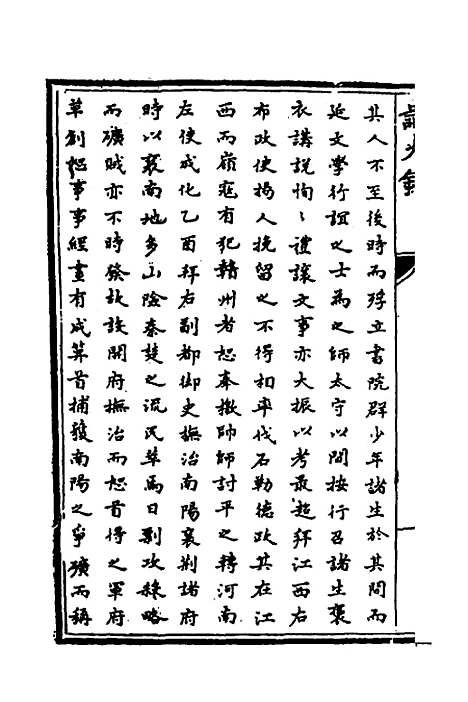 其人不至後時而殍立書院群少年諸生於其間而
延文學行誼之士為之師太守以間按行召諸生褒
衣講說恂〻禮讓文事亦大振以考最超拜江西右
布政使揚人挽留之不得扣率伐石勒德政其在江
西而嶺寇有犯贛州者恕奉檄帥師討平之轉河南
左使成化乙酉拜右副都御史撫治南陽襄荆諸府
時以襄南地多山險秦楚之流民萃焉日剽攻椽略
而礦賊亦不時發故設開府撫治而恕首得之軍府
草創恕事事經畫有成筭首捕獲南陽之爭礦而稱